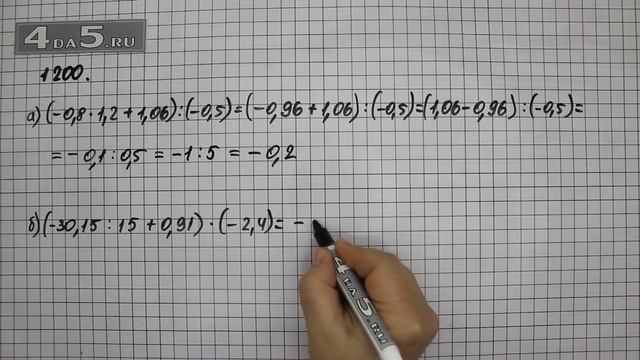 4DA5.RU
1200.
а) (-0,8·1,2+1,06):(-0,5)=(-0,96+1,06):(-0,5)=(1,06-0,96):(-0,5)=
=-0,1:0,5=-1:5=-0,2
б) (-30,15:15+0,91)·(-2,4)= -
4DA5.RU